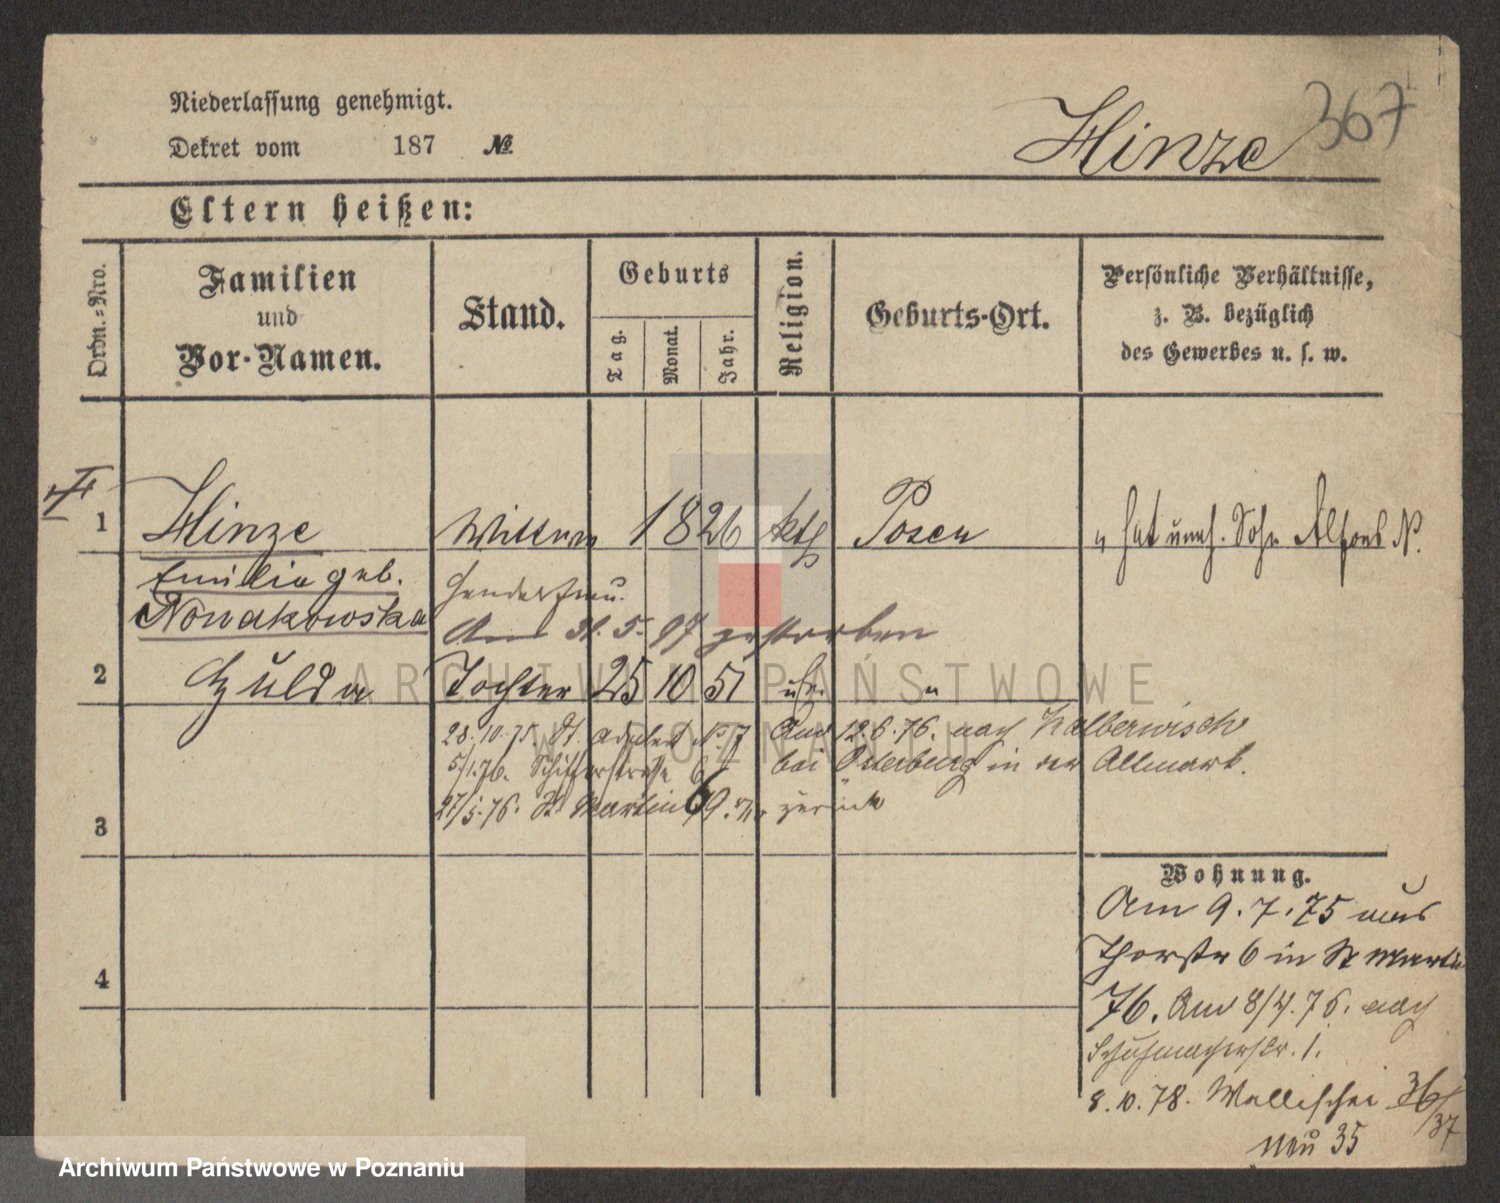 Niederlassung genehmigt.
Dekret vom 187 №
Hinze 367
Eltern heißen:
Ordn.-Nro.
Familien
und
Vor-Namen.
Stand.
Geburts
Tag.
Monat.
Jahr.
Religion.
Geburts-Ort.
Persönliche Verhältnisse,
z. B. bezüglich
des Gewerbes u. s. w.
1 Hinze Wittwe 1826 kth Posen hat uneh. Sohn Alfons N.
Emilie geb.
Nowakowska
Am 31.5.97 gestorben
2 Hulda Tochter 25 10 51 "
28.10.75. St. Adalbert No 7 Am 12.6.76. nach Kalberwisch
5/1.76. Schifferstraße 6 bei Osterburg in der Altmark.
27/5.76. St. Martin 69. zurück
3
4
Wohnung.
Am 9.7.75 aus
Thorstr 6 in St Martin
76. Am 8/4.76. nach
Schuhmacherstr. 1.
8.10.78. Wallischei 36/37
neu 35
ARCHIWUM PAŃSTWOWE
W POZNANIU
Archiwum Państwowe w Poznaniu